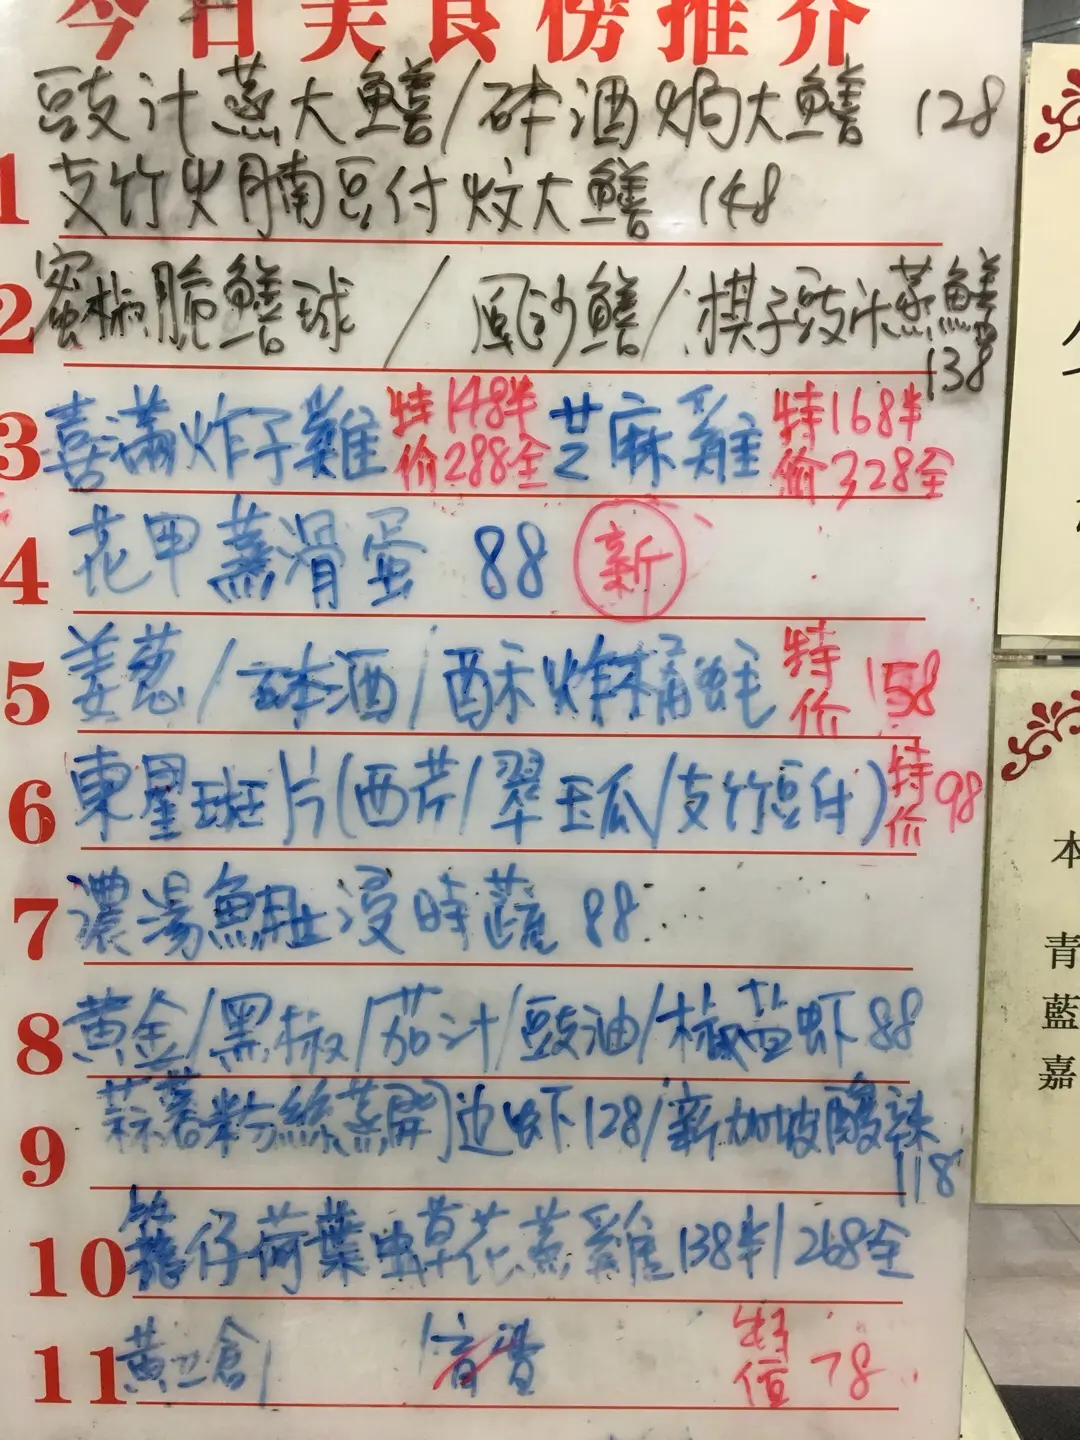 今日美食榜推介
豉汁蒸大鱔/砵酒焗大鱔 128
1 支竹火腩豆付炆大鱔 148
2 蜜椒脆鱔球 / 風沙鱔/棋子豉汁蒸鱔 138
3 喜滿炸子雞 特价 148半 288全 芝麻雞 特价 168半 328全
4 花甲蒸滑蛋 88 新
5 姜葱/砵酒/酥炸桶蚝 特价 158
6 東星斑片(西芹/翠玉瓜/支竹豆付) 特价 98
7 濃湯魚肚浸時蔬 88
8 黄金/黑椒/茄汁/豉油/椒盐虾 88
9 蒜蓉粉絲蒸開边虾 128/新加坡酸辣 118
10 籠仔荷葉虫草花蒸雞 138半/268全
11 黄立倉 特 78
本
青
藍
嘉